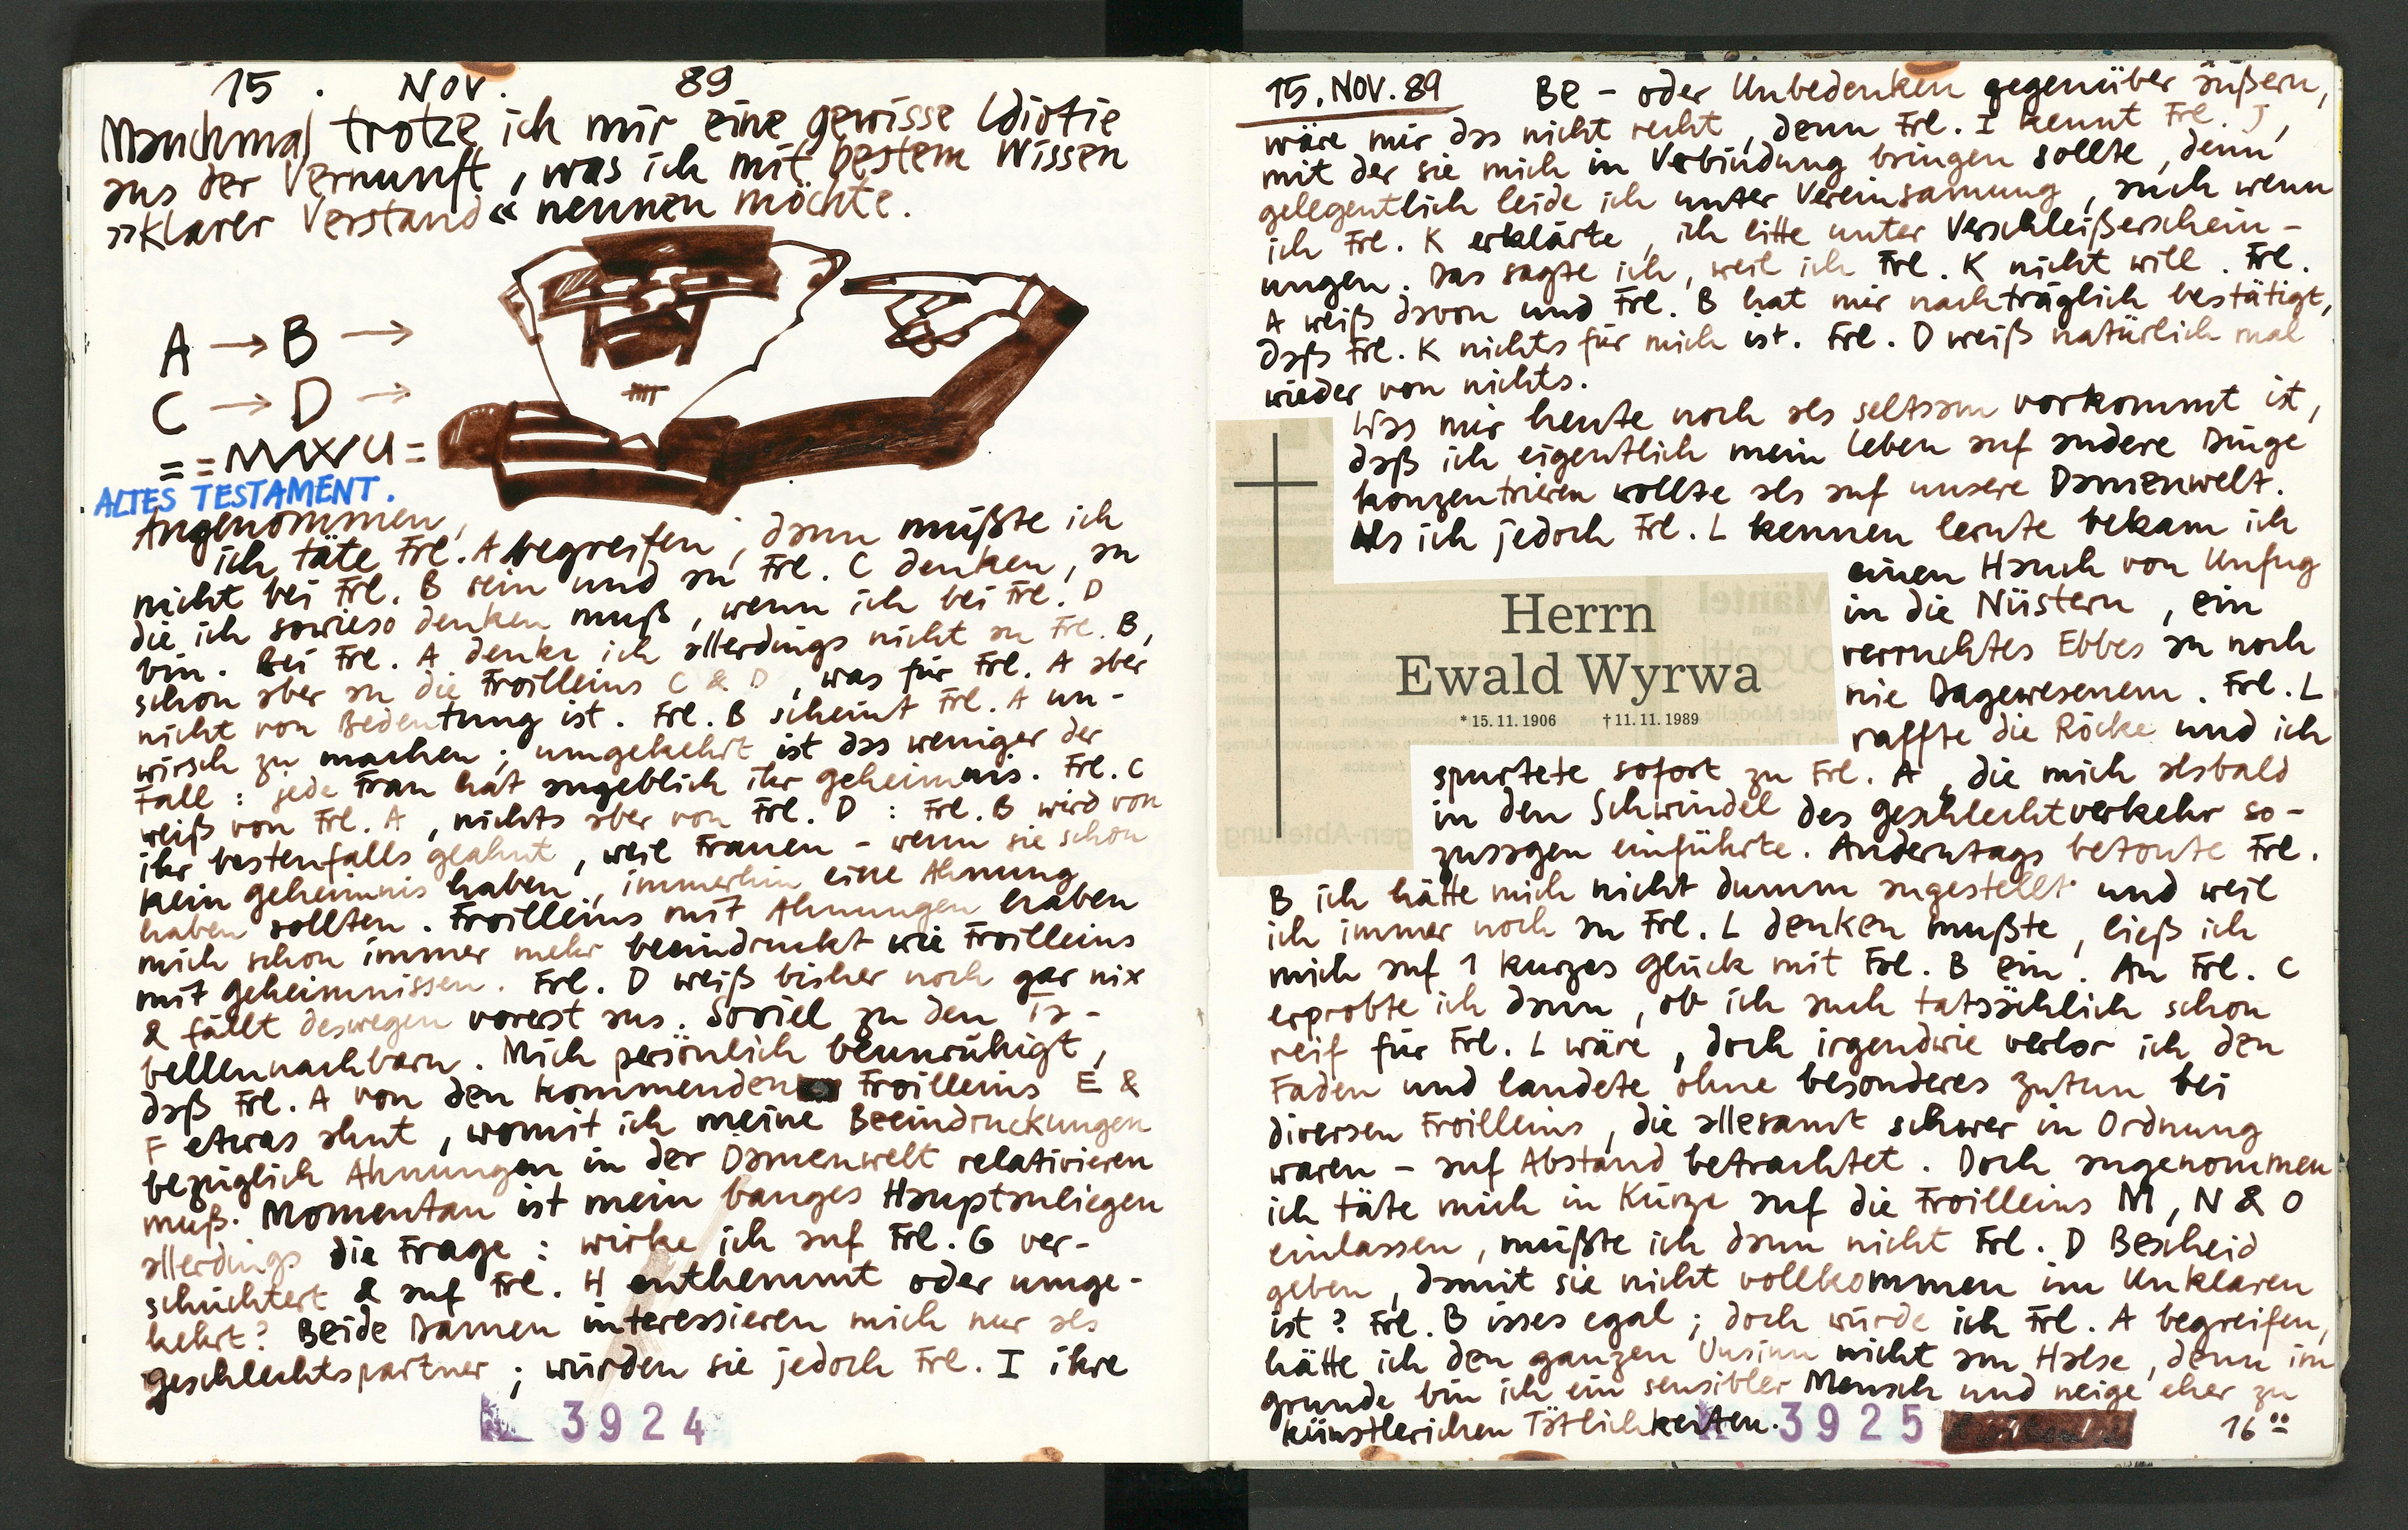 15. Nov. 89
Manchmal trotze ich mir eine gewisse Idiotie
aus der Vernunft, was ich mit bestem Wissen
»klarer Verstand« nennen möchte.
A → B →
C → D →
ALTES TESTAMENT.
Angenommen,
ich täte Frl. A begreifen, dann müßte ich
nicht bei Frl. B sein und an Frl. C denken, an
die ich sowieso denken muß, wenn ich bei Frl. D
bin. Bei Frl. A denke ich allerdings nicht an Frl. B,
schon aber an die Froilleins C & D, was für Frl. A aber
nicht von Bedeutung ist. Frl. B scheint Frl. A un-
wirsch zu machen; umgekehrt ist das weniger der
Fall: jede Frau hat angeblich ihr geheimnis. Frl. C
weiß von Frl. A, nichts aber von Frl. D: Frl. B wird von
ihr bestenfalls geahnt, weil Frauen - wenn sie schon
kein geheimnis haben, immerhin eine Ahnung
haben sollten. Froilleins mit Ahnungen haben
mich schon immer mehr beeindruckt wie Froilleins
mit geheimnissen. Frl. D weiß bisher noch gar nix
& fällt deswegen vorerst aus. Soviel zu den Ta-
bellennachbarn. Mich persönlich beunruhigt,
daß Frl. A von den kommenden Froilleins E &
F etwas ahnt, womit ich meine Beeindruckungen
bezüglich Ahnungen in der Damenwelt relativieren
muß. Momentan ist mein banges Hauptanliegen
allerdings die Frage: wirke ich auf Frl. G ver-
schüchtert & auf Frl. H enthemmt oder umge-
kehrt? Beide Damen interessieren mich nur als
geschlechtspartner; würden sie jedoch Frl. I ihre
3924
15. NOV. 89 Be- oder Unbedenken gegenüber äußern,
wäre mir das nicht recht, denn Frl. I kennt Frl. J,
mit der sie mich in Verbindung bringen sollte, denn
gelegentlich leide ich unter Vereinsamung, auch wenn
ich Frl. K erklärte, ich litte unter Verschleißerschein-
ungen. Das sagte ich, weil ich Frl. K nicht will. Frl.
A weiß davon und Frl. B hat mir nachträglich bestätigt,
daß Frl. K nichts für mich ist. Frl. D weiß natürlich mal
wieder von nichts.
Was mir heute noch als seltsam vorkommt ist,
daß ich eigentlich mein Leben auf andere Dinge
konzentrieren wollte als auf unsere Damenwelt.
Als ich jedoch Frl. L kennen lernte bekam ich
einen Hauch von Unfug
in die Nüstern, ein
verruchtes Ebbes an noch
nie Dagewesenem. Frl. L
raffte die Röcke und ich
Herrn
Ewald Wyrwa
* 15. 11. 1906 † 11. 11. 1989
spurtete sofort zu Frl. A, die mich alsbald
in den Schwindel des geschlechtverkehr so-
zusagen einführte. Anderntags betonte Frl.
B ich hätte mich nicht dumm angestellt und weil
ich immer noch an Frl. L denken mußte, ließ ich
mich auf 1 kurzes glück mit Frl. B ein. An Frl. C
erprobte ich dann, ob ich auch tatsächlich schon
reif für Frl. L wäre, doch irgendwie verlor ich den
Faden und landete ohne besonderes zutun bei
diversen Froilleins, die allesamt schwer in Ordnung
waren - auf Abstand betrachtet. Doch angenommen
ich täte mich in Kürze auf die Froilleins M, N & O
einlassen, müßte ich dann nicht Frl. D Bescheid
geben, damit sie nicht vollkommen im Unklaren
ist? Frl. B isses egal; doch würde ich Frl. A begreifen,
hätte ich den ganzen Unsinn nicht am Halse, denn im
grunde bin ich ein sensibler Mensch und neige eher zu
künstlerichen Tätlichkeiten.
3925
16°°